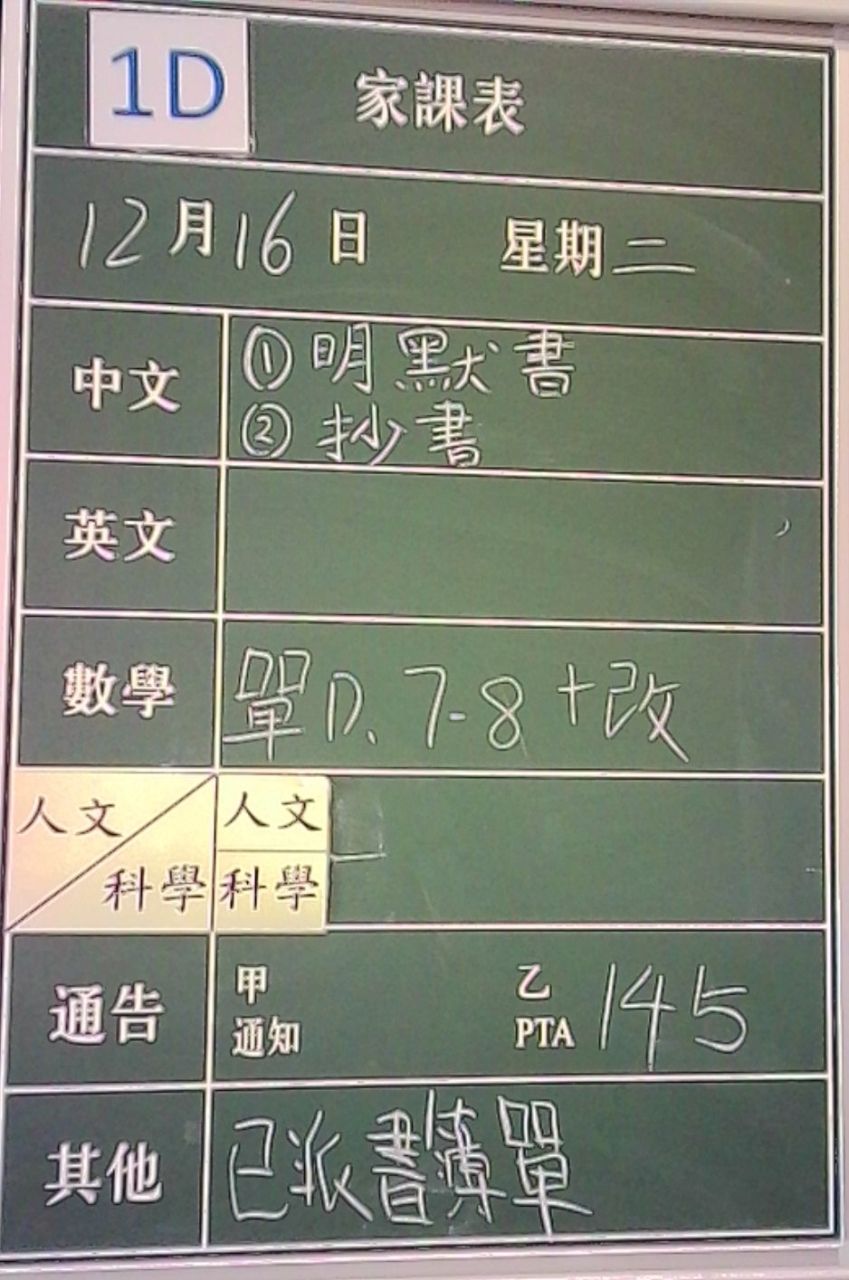 1D 家課表
12月16日 星期二
中文 ①明默書
②抄書
英文
數學 單D、7-8+改
人文 人文
科學 科學
通告 甲 乙
通知 PTA 145
其他 已派書簿單